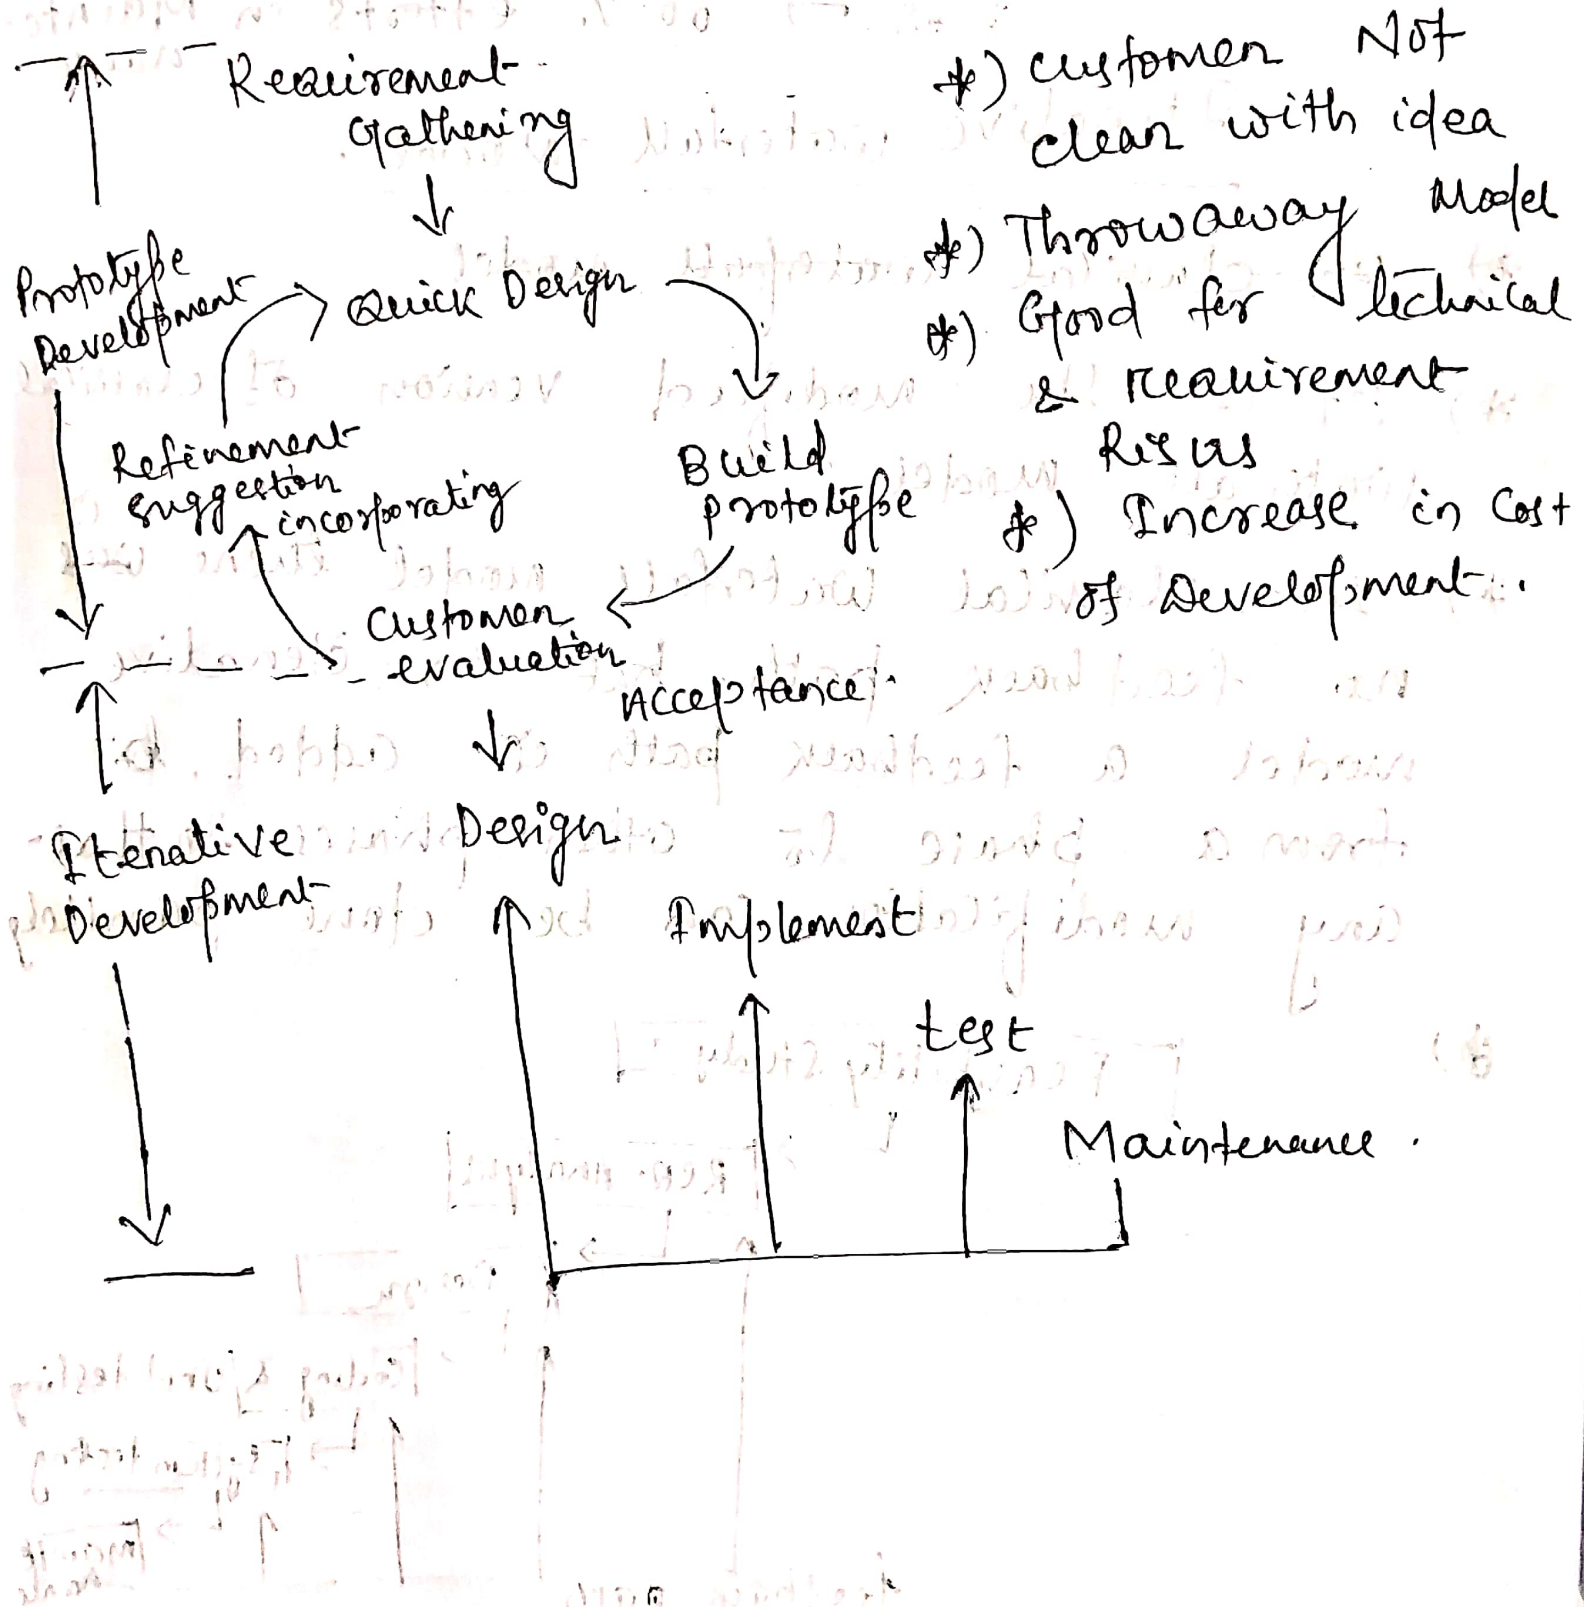 Requirement
Gathering
Prototype
Development
Quick Design
Refinement
suggestion
incorporating
Build
prototype
Customer
evaluation
Acceptance.
Iterative
Development
Design
Implement
test
Maintenance.
*) Customer Not
clear with idea
*) Throwaway Model
*) Good for technical
& requirement
Risks
*) Increase in Cost
of Development.